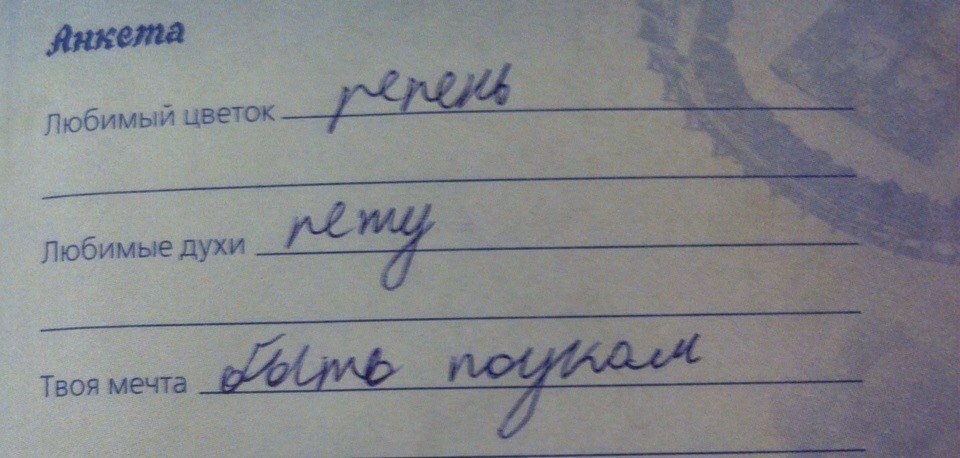 Анкета
Любимый цветок репень
Любимые духи нету
Твоя мечта быть поукам